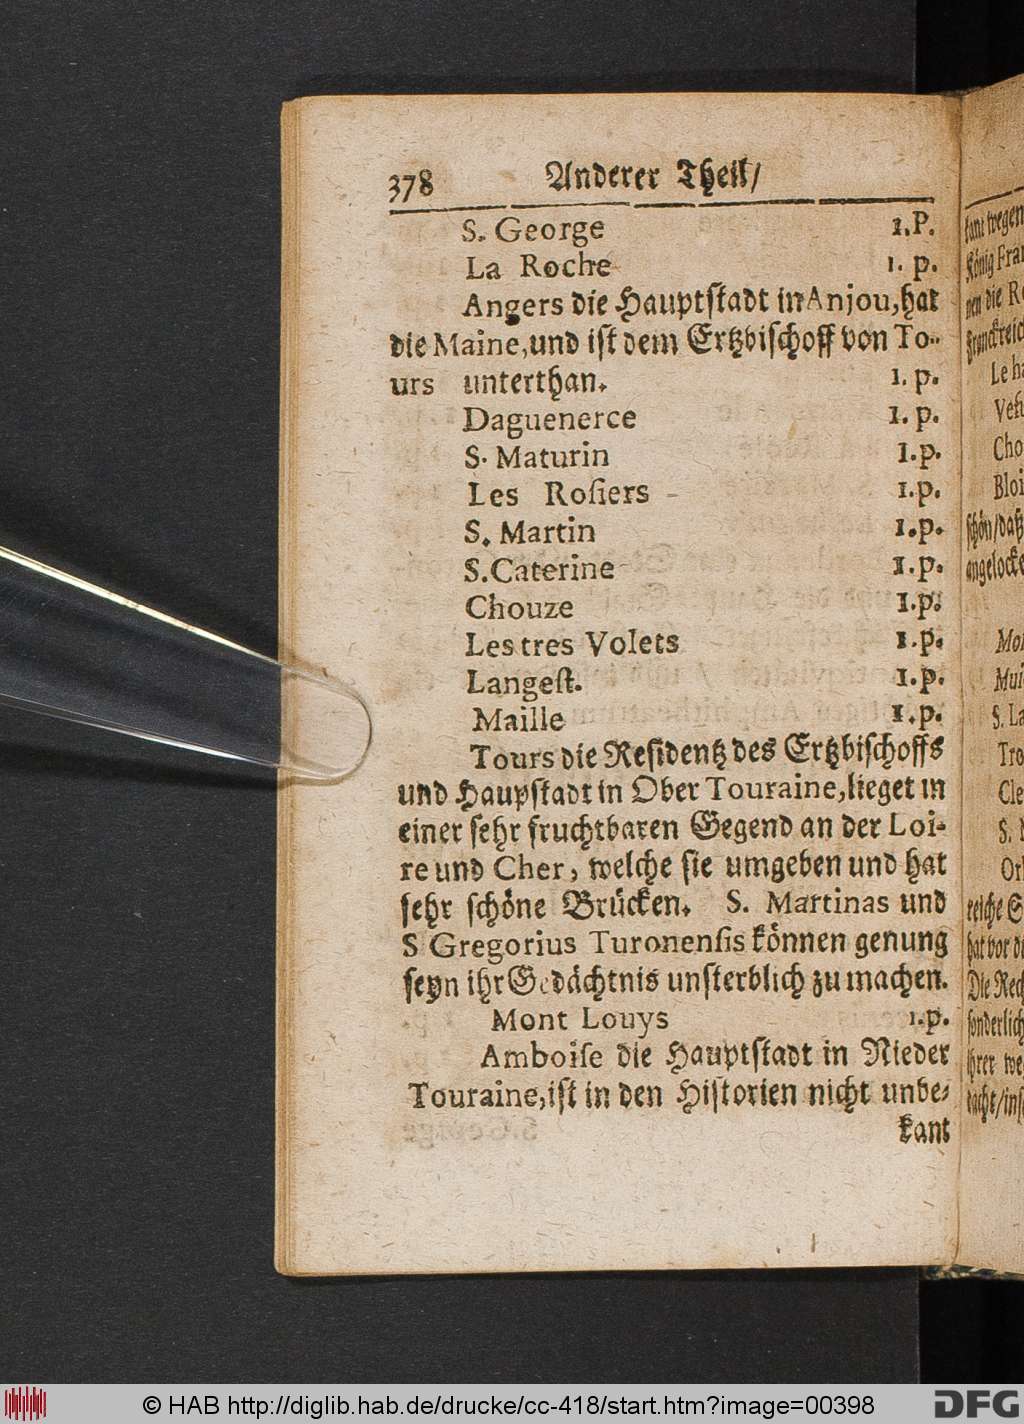 378 Anderer Theil/
S. George 1.P.
La Roche 1. p.
Angers die Hauptſtadt in Anjou, hat
die Maine, und iſt dem Ertzbiſchoff von To-
urs unterthan. 1. p.
Daguenerce 1. p.
S. Maturin 1. p.
Les Roſiers 1. p.
S. Martin 1. p.
S. Caterine 1. p.
Chouze 1. p.
Les tres Volets 1. p.
Langeſt. 1. p.
Maille 1. p.
Tours die Reſidentz des Ertzbiſchoffs
und Haupſtadt in Ober Touraine, lieget in
einer ſehr fruchtbaren Gegend an der Loi-
re und Cher, welche ſie umgeben und hat
ſehr ſchöne Brücken. S. Martinas und
S Gregorius Turonenſis können genung
ſeyn ihr Gedächtnis unſterblich zu machen.
Mont Louys 1. p.
Amboiſe die Hauptſtadt in Nieder
Touraine, iſt in den Hiſtorien nicht unbe-
kant
kant wegen
König Fra
nen die Re
Franckreic
Le h
Veſu
Cho
Bloi
ſchön/daß
angelocke
Mo
Mui
S. La
Tro
Cle
S. 
Orl
reiche S
hat vor d
Die Rec
ſonderlich
ihrer we
dacht/inſ
© HAB http://diglib.hab.de/drucke/cc-418/start.htm?image=00398
DFG